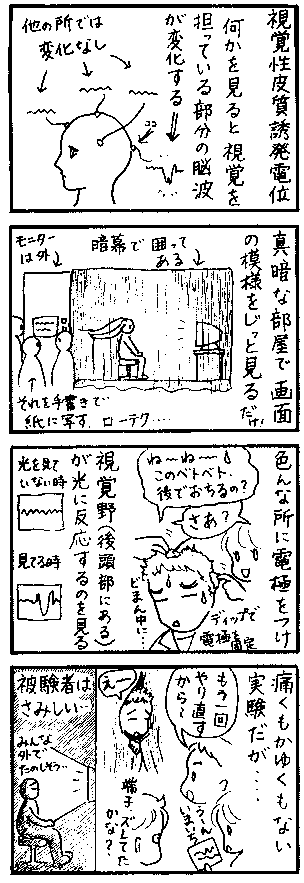 視覚性皮質誘発電位
何かを見ると視覚を
担っている部分の脳波
が変化する
他の所では
変化なし
ココ
真暗な部屋で画面
の模様をじっと見るだけ
暗幕で囲って
ある
モニター
は外
それを手書きで
紙に写す ローテク…
色んな所に電極をつけ
ね〜ね〜
このベトベト、
後でおちるの?
さあ?
どまん中に…
ディップで
電極固定
視覚野(後頭部にある)
が光に反応するのを見る
光を見て
いない時
見てる時
痛くもかゆくもない
実験だが…
もう一回
やり直す
から
うーん
まいち
えー
端子ズレてた
かな?
被験者は
さみしい…
みんな
外で
たのしそう…